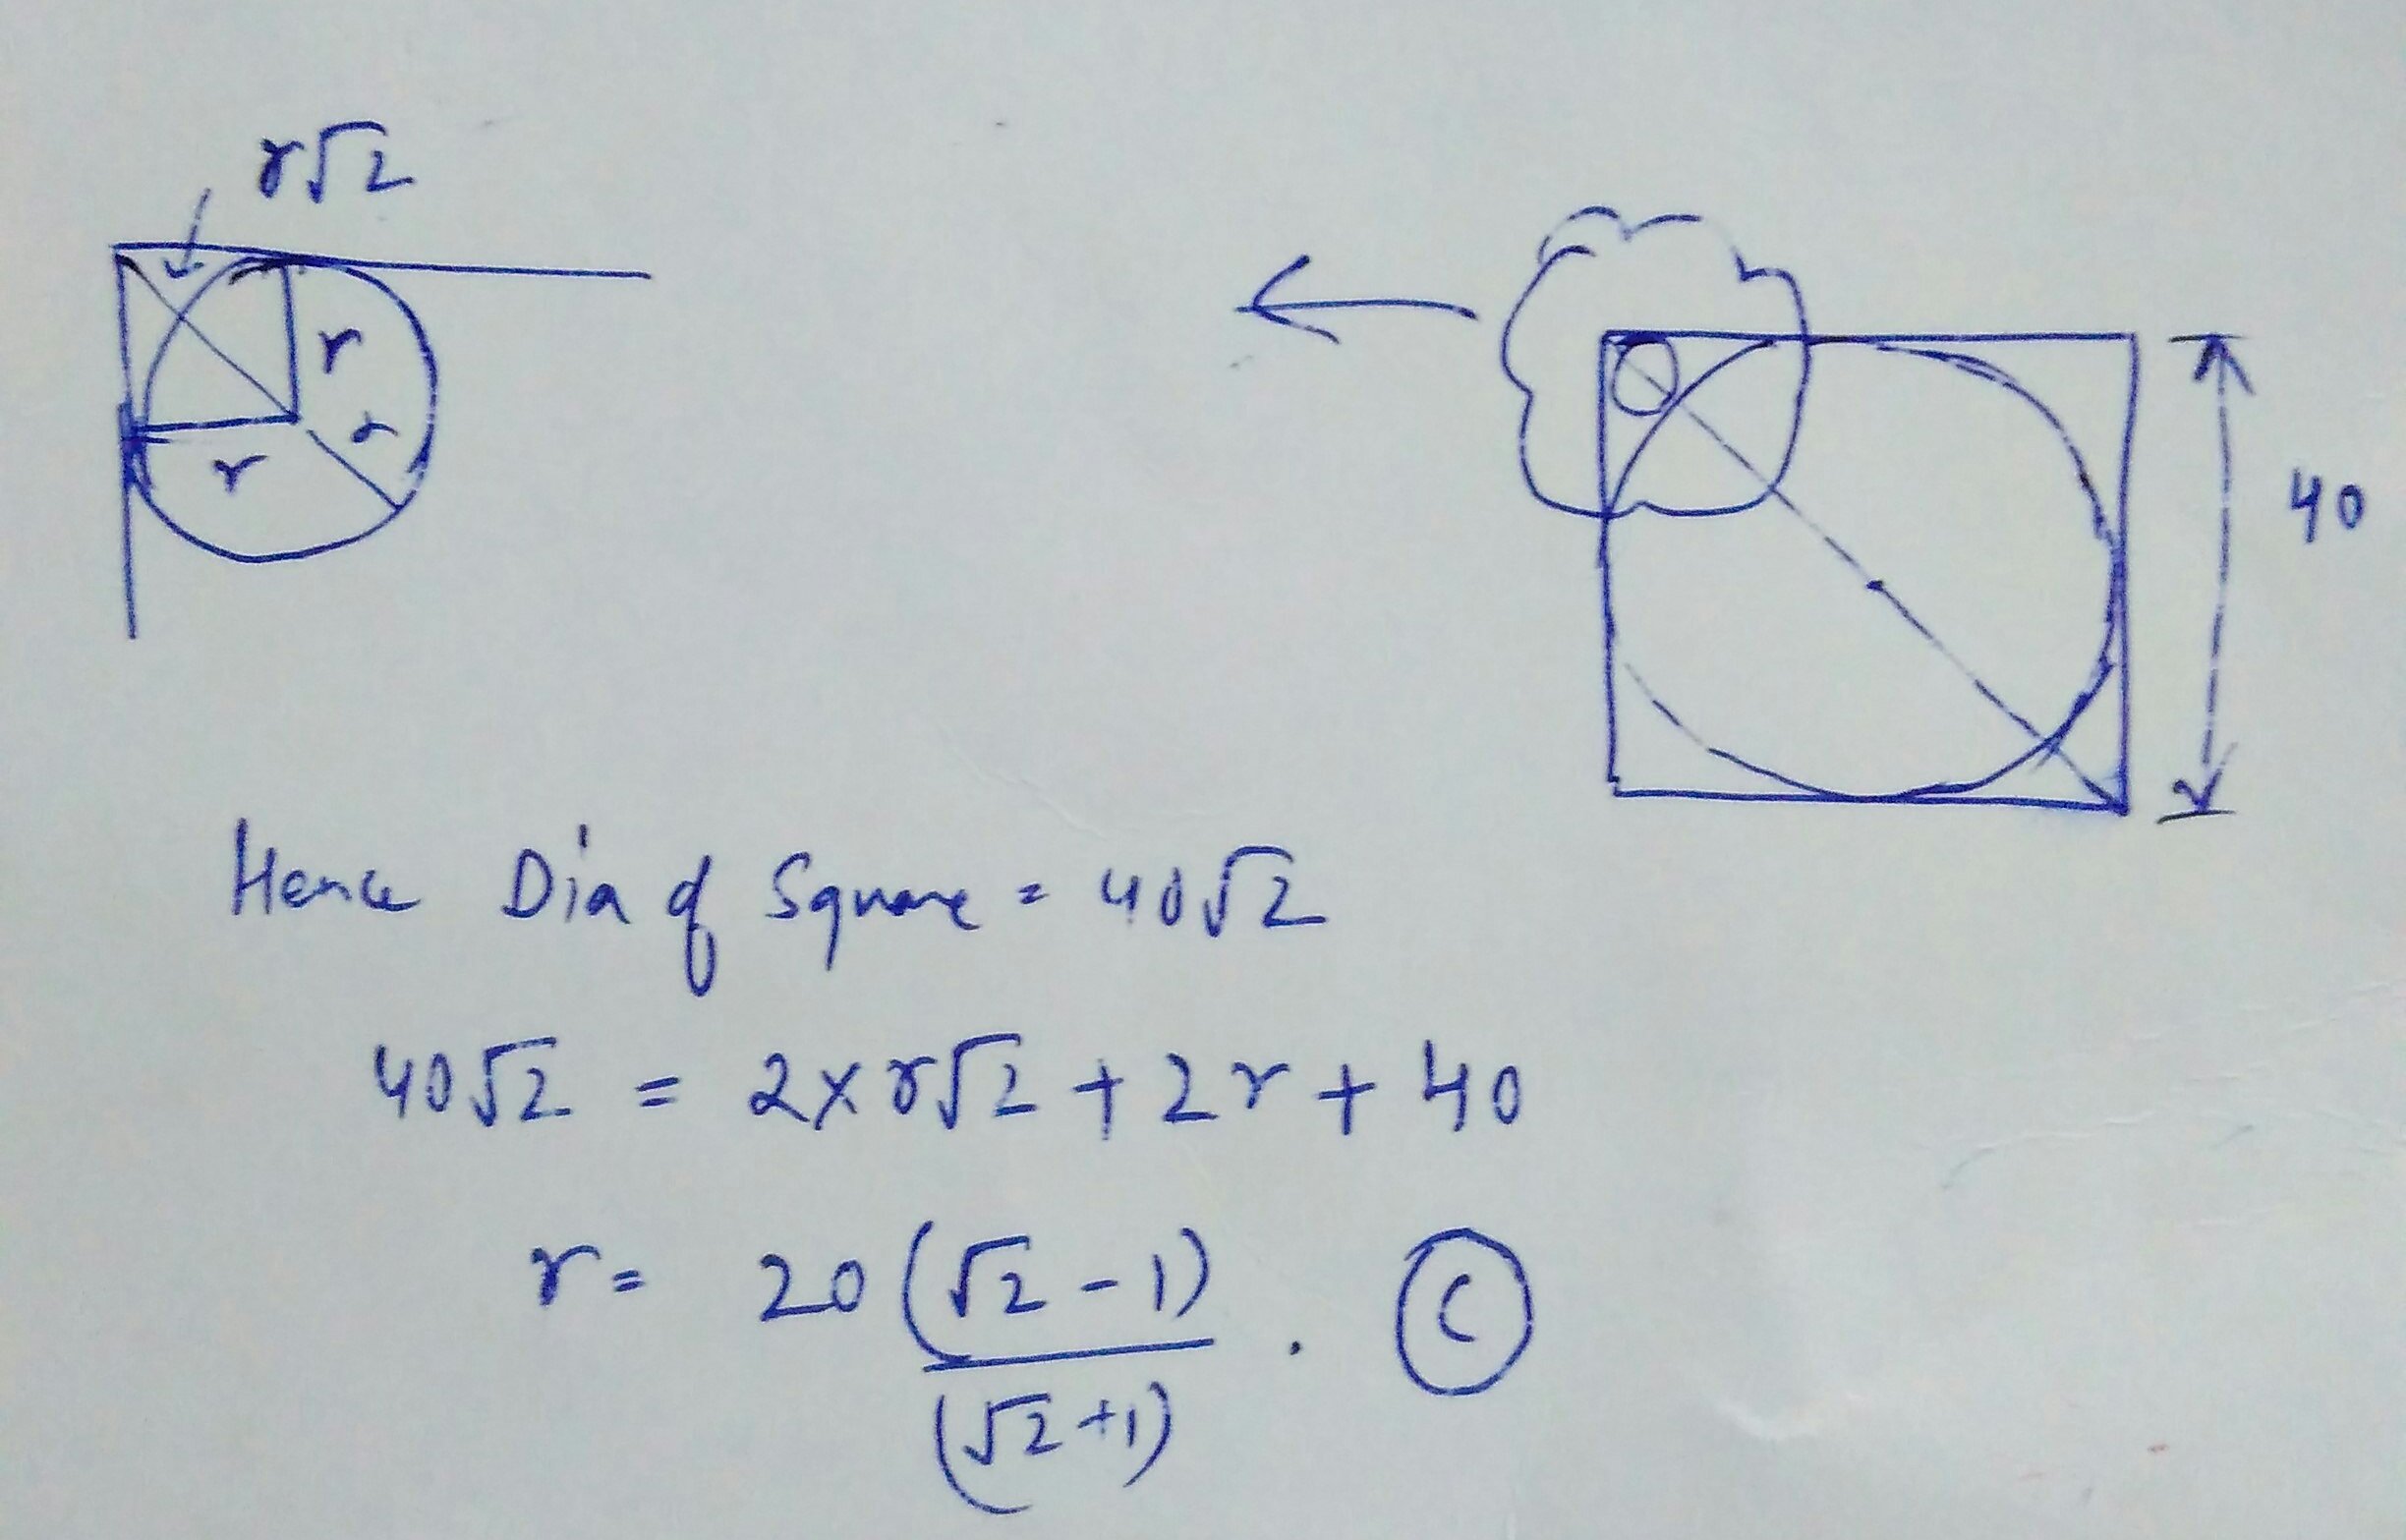 r√2
r
r
r
40
Hence Dia of Square = 40√2
40√2 = 2×r√2 + 2r + 40
r = 20 (√2 - 1)
(√2 + 1) . C